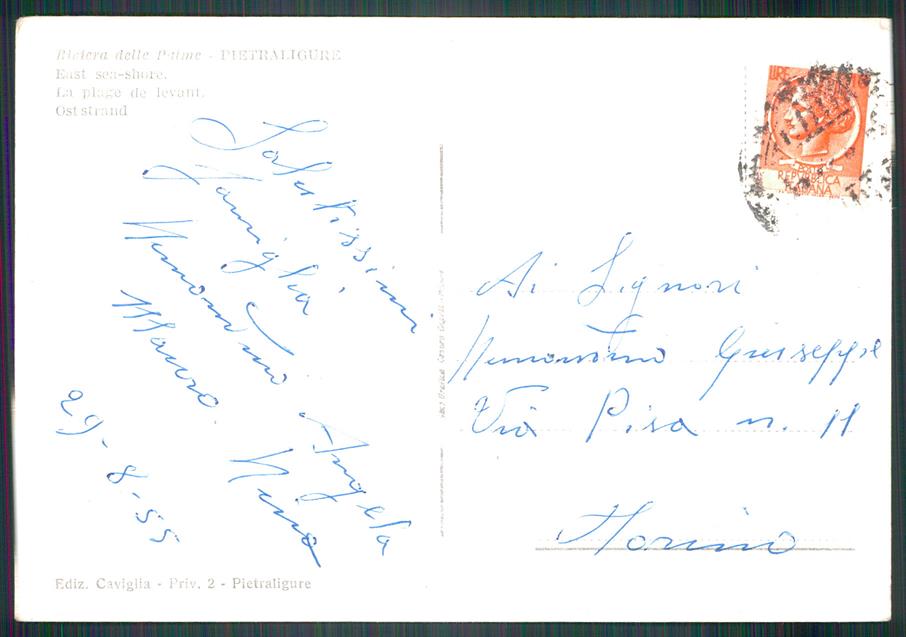 Riviera delle Palme - PIETRALIGURE
East sea-shore.
La plage de levant.
Oststrand
Salutissimi
Famiglia
Mauro
Angela
Nino
29-8-55
Ediz. Caviglia - Priv. 2 - Pietraligure
LIRE
REPUBBLICA
ITALIANA
Ai Signori
Giuseppe
Via Pisa n. 11
Torino